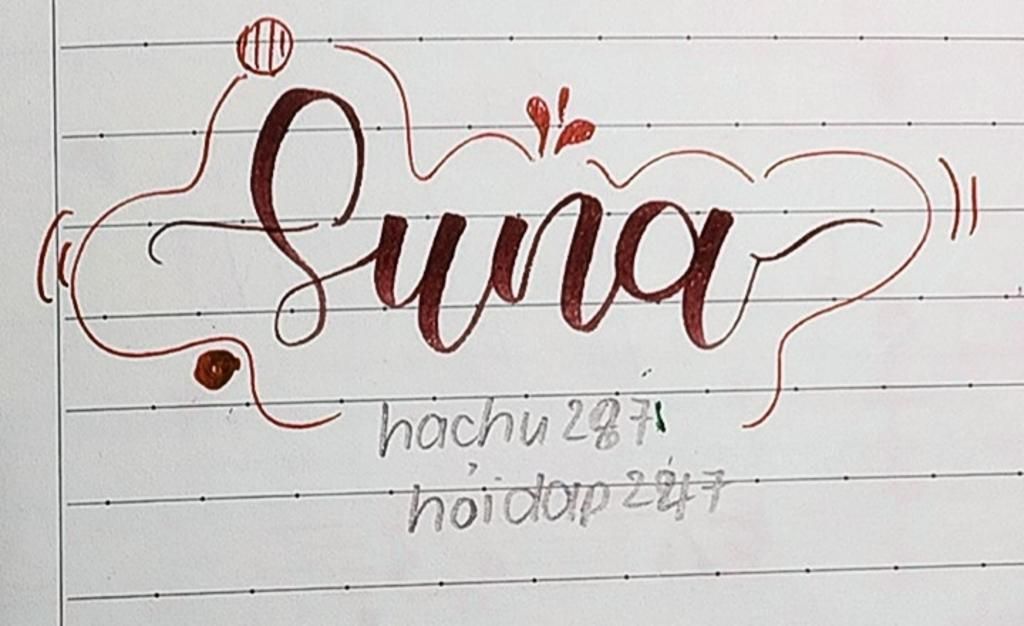 Suna
hachu287
hỏidap247